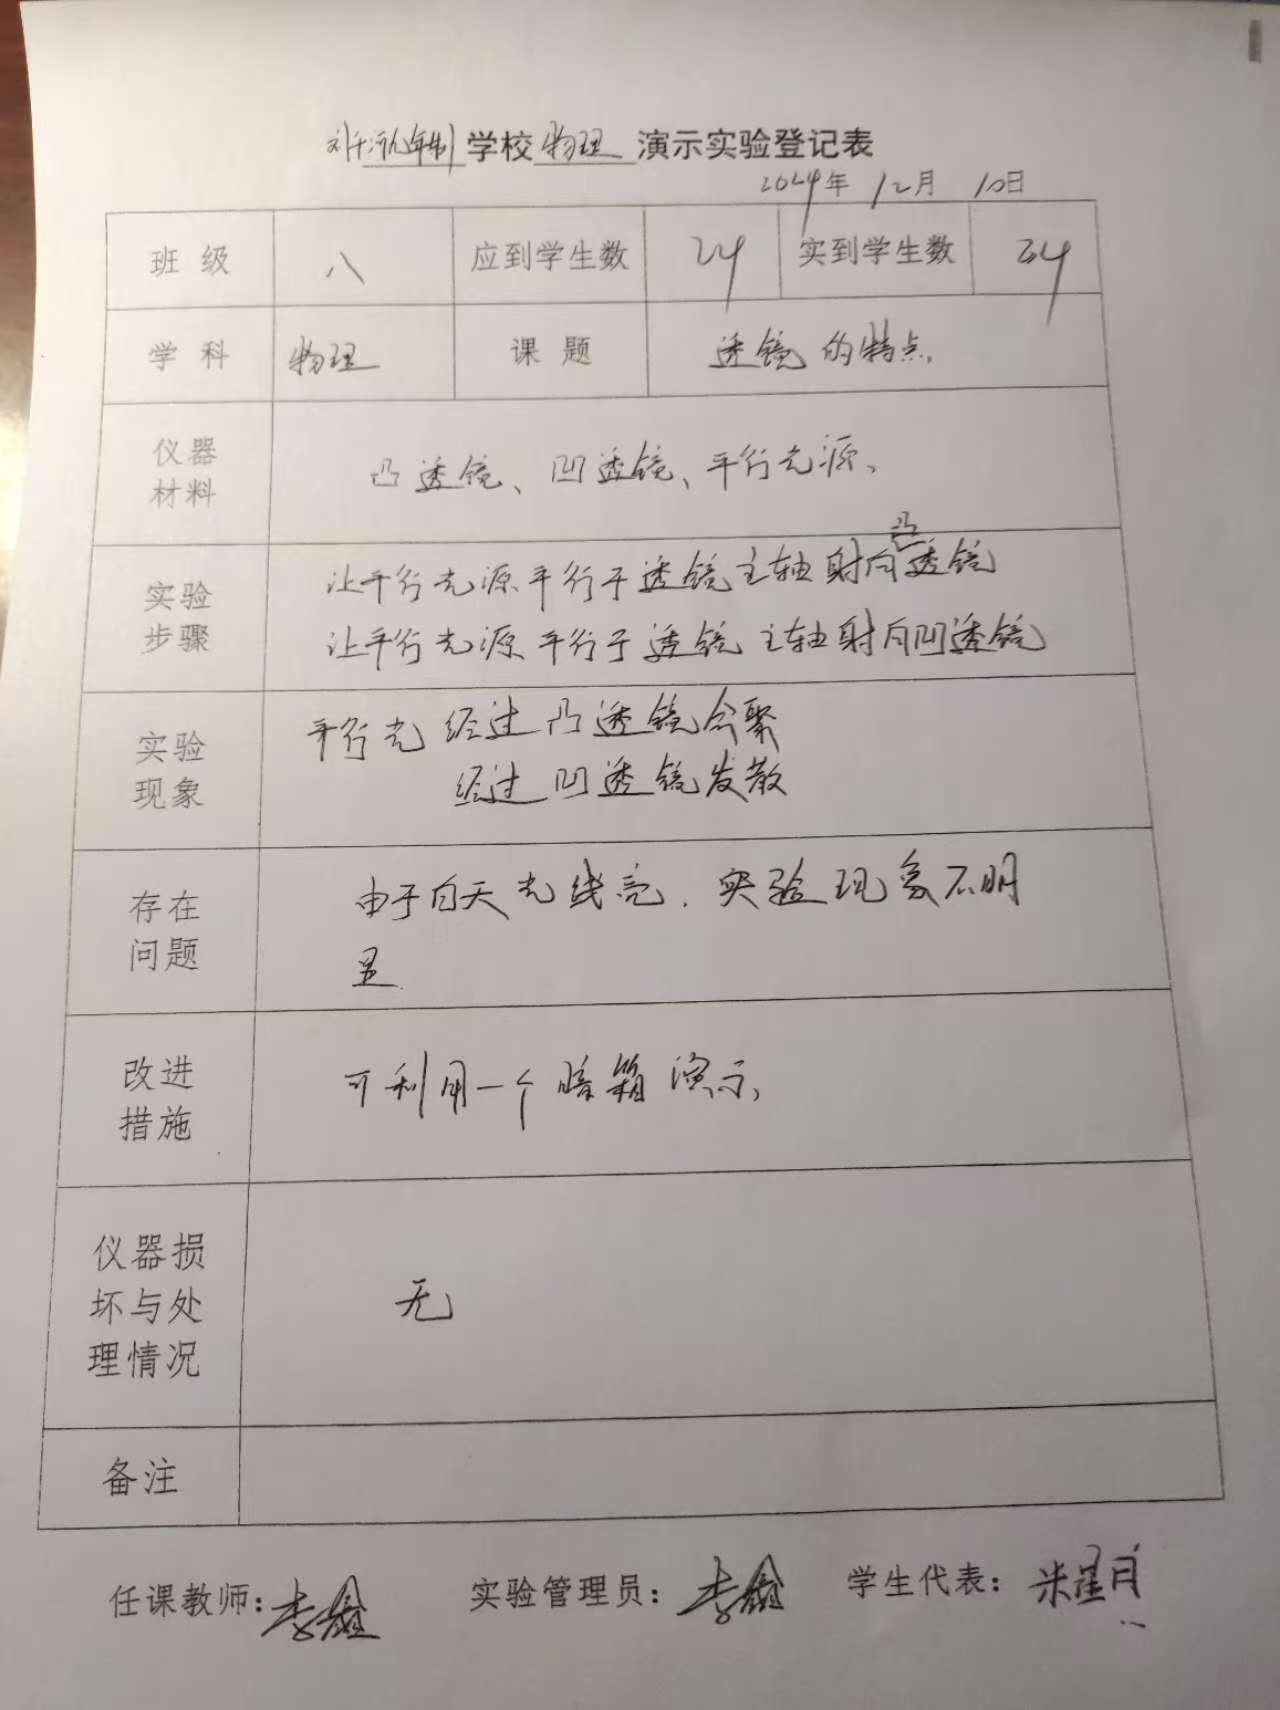 九年制学校 物理 演示实验登记表
2024年 12月 10日
班 级 八 应到学生数 24 实到学生数 24
学 科 物理 课 题 透镜的特点.
仪器
材料
凸透镜、凹透镜、平行光源、
实验
步骤
让平行光源平行于透镜主轴射向凸透镜
让平行光源平行于透镜主轴射向凹透镜
实验
现象
平行光 经过凸透镜会聚
经过凹透镜发散
存在
问题
由于白天光线亮. 实验现象不明
显.
改进
措施
可利用一个暗箱演示、
仪器损
坏与处
理情况
无
备注
任课教师:李鑫 实验管理员:李鑫 学生代表:米星月